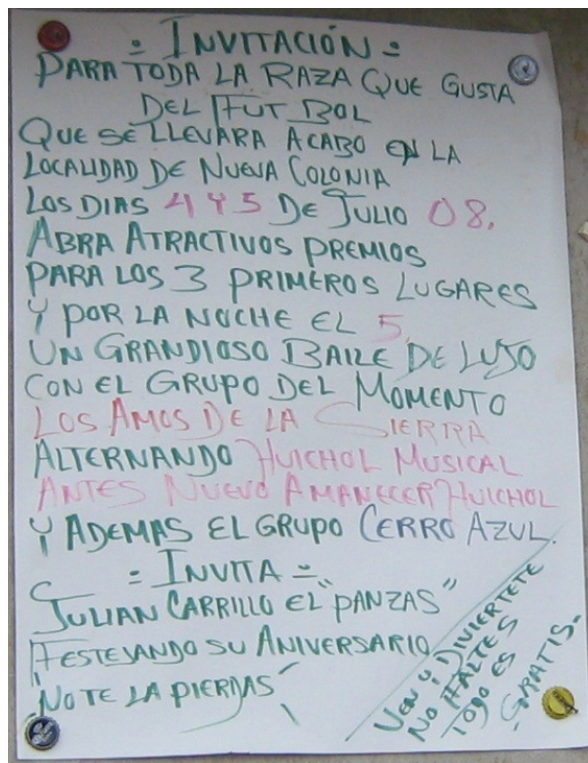 = INVITACIÓN =
PARA TODA LA RAZA QUE GUSTA
DEL FUT BOL
QUE SE LLEVARA ACABO EN LA
LOCALIDAD DE NUEVA COLONIA
LOS DIAS 4 Y 5 DE JULIO 08.
ABRA ATRACTIVOS PREMIOS
PARA LOS 3 PRIMEROS LUGARES
Y POR LA NOCHE EL 5
UN GRANDIOSO BAILE DE LUJO
CON EL GRUPO DEL MOMENTO
LOS AMOS DE LA SIERRA
ALTERNANDO HUICHOL MUSICAL
ANTES NUEVO AMANECER HUICHOL
Y ADEMAS EL GRUPO CERRO AZUL.
= INVITA =
JULIAN CARRILLO EL "PANZAS"
FESTEVANDO SU ANIVERSARIO
¡NO TE LA PIERDAS!
VEN Y DIVIERTETE
NO FALTES
TODO ES
-GRATIS-